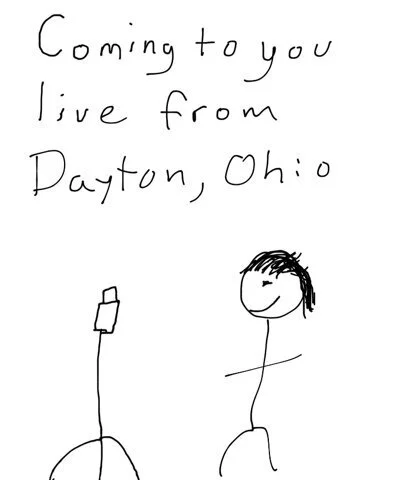 Coming to you
live from
Dayton, Ohio